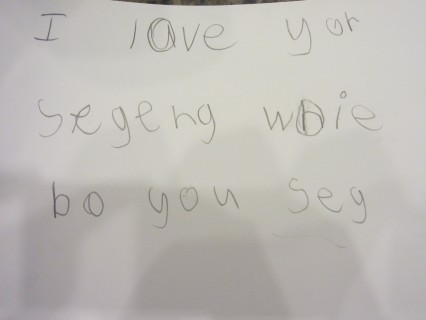 I love yor
segeng whie
bo you seg